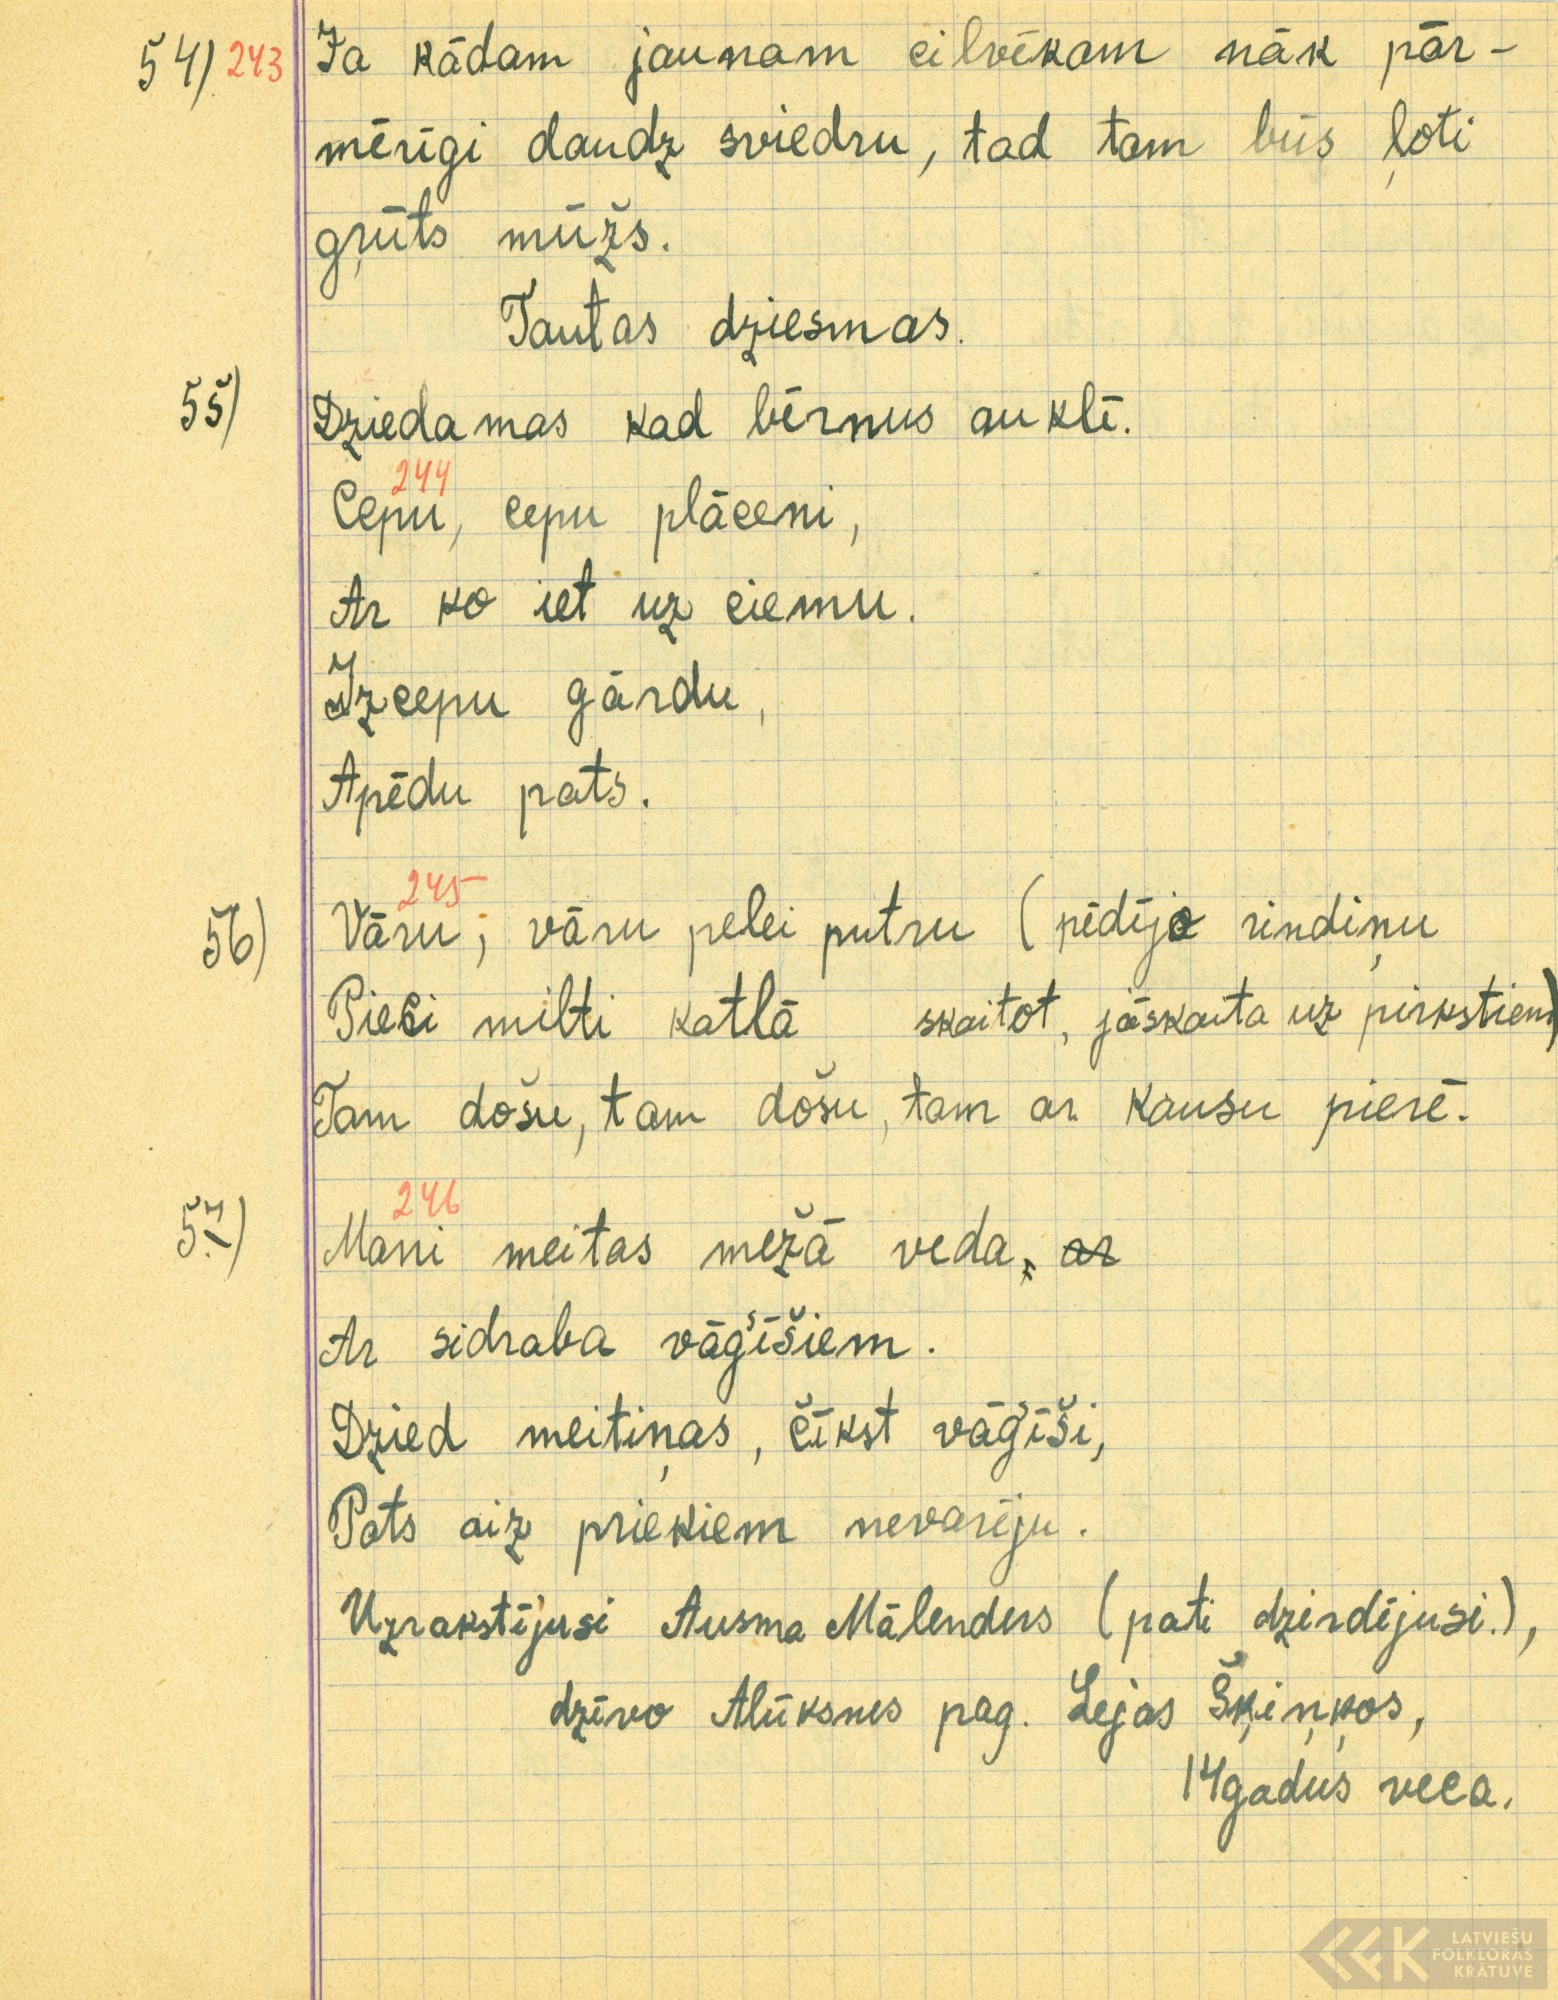 54) 243 Ja kādam jaunam cilvēkam nāk pār-
mērīgi daudz sviedru, tad tam būs ļoti
gŗūts mūžs.
Tautas dziesmas.
55) Dziedamas kad bērnus auklē.
244
Cepu, cepu plāceni,
Ar ko iet uz ciemu.
Izcepu gārdu,
Apēdu pats.
245
56) Vāru, vāru pelei putru (pēdējo rindiņu
Pieci milti katlā skaitot, jāskaita uz pirkstiem)
Tam došu, tam došu, tam ar kausu pierē.
246
57.) Mani meitas mežā veda, ar
Ar sidraba vāģīšiem.
Dzied meitiņas, čīkst vāģīši,
Pats aiz priekiem nevarēju.
Uzrakstījusi Ausma Mālenders (pati dzirdējusi.),
dzīvo Alūksnes pag. Lejas Šķiņķos,
14 gadus veca.
LATVIEŠU
FOLKLORAS
KRĀTUVE